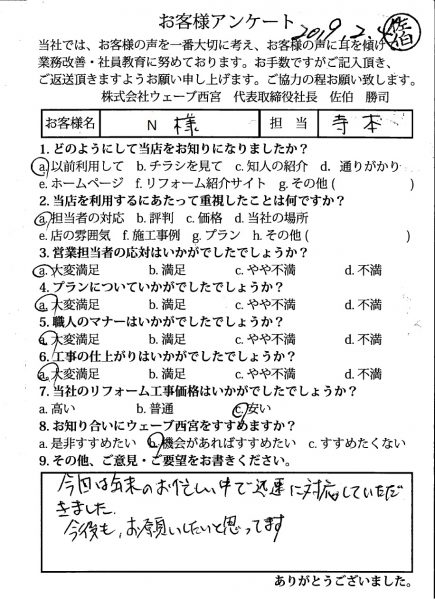 お客様アンケート 2019.2.4
当社では、お客様の声を一番大切に考え、お客様の声に耳を傾け
業務改善・社員教育に努めております。お手数ですがご記入頂き、
ご返送頂きますようお願い申し上げます。ご協力の程お願い致します。
株式会社ウェーブ西宮 代表取締役社長 佐伯 勝司
お客様名 N 様 担当 寺本
1. どのようにして当店をお知りになりましたか?
a. 以前利用して b. チラシを見て c. 知人の紹介 d. 通りがかり
e. ホームページ f. リフォーム紹介サイト g. その他 ( )
2. 当店を利用するにあたって重視したことは何ですか?
a. 担当者の対応 b. 評判 c. 価格 d. 当社の場所
e. 店の雰囲気 f. 施工事例 g. プラン h. その他 ( )
3. 営業担当者の応対はいかがでしたでしょうか?
a. 大変満足 b. 満足 c. やや不満 d. 不満
4. プランについていかがでしたでしょうか?
a. 大変満足 b. 満足 c. やや不満 d. 不満
5. 職人のマナーはいかがでしたでしょうか?
a. 大変満足 b. 満足 c. やや不満 d. 不満
6. 工事の仕上がりはいかがでしたでしょうか?
a. 大変満足 b. 満足 c. やや不満 d. 不満
7. 当社のリフォーム工事価格はいかがでしたでしょうか?
a. 高い b. 普通 c. 安い
8. お知り合いにウェーブ西宮をすすめますか?
a. 是非すすめたい b. 機会があればすすめたい c. すすめたくない
9. その他、ご意見・ご要望をお書きください。
今回は年末のお忙しい中で迅速に対応していただ
きました.
今後も、お願いしたいと思ってます
ありがとうございました。